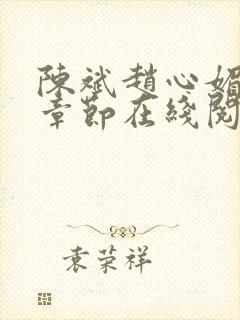 陳斌趙心媚
章節在綫閱
袁荣祥